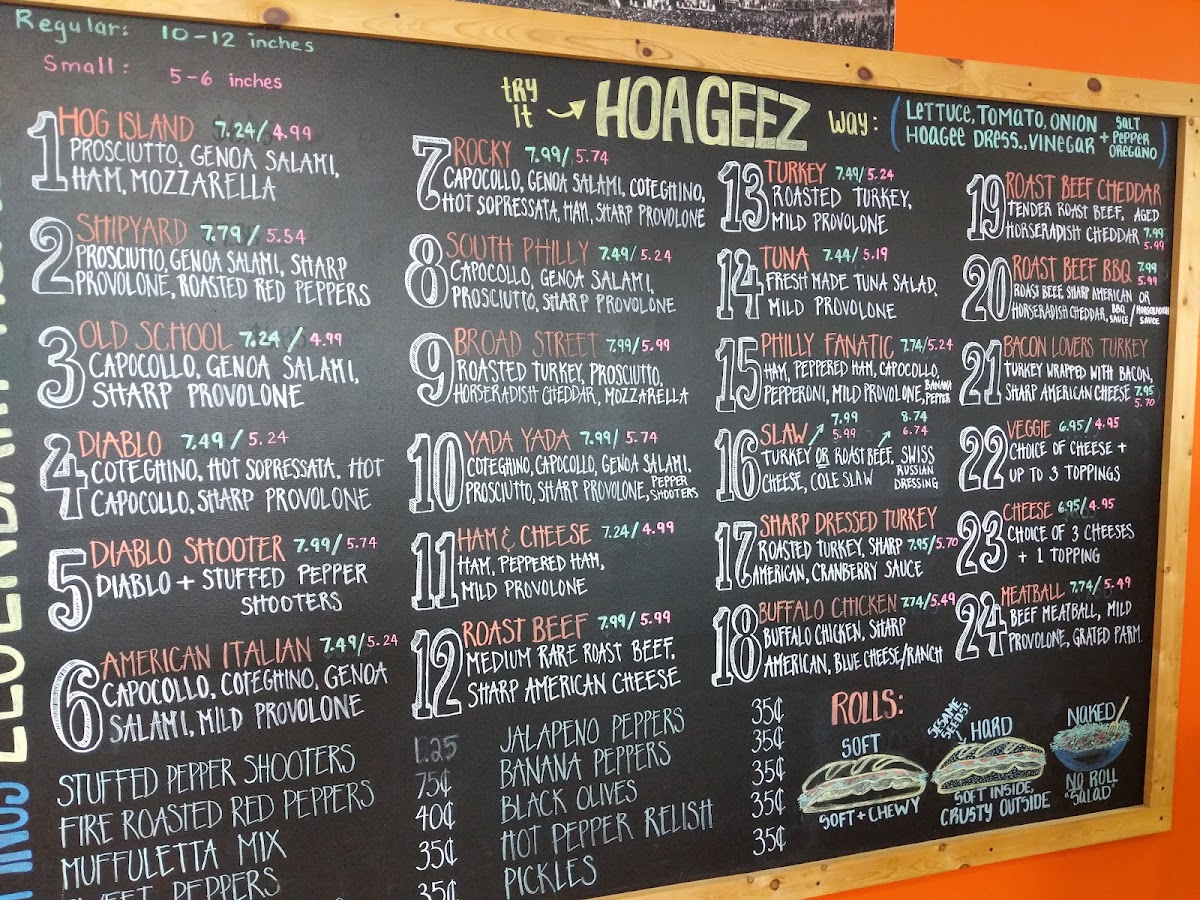 Regular: 10-12 inches
Small: 5-6 inches
TRY IT → HOAGEEZ WAY: (LETTUCE, TOMATO, ONION
HOAGEE DRESS..VINEGAR + SALT PEPPER OREGANO)
1 HOG ISLAND 7.24/4.99
PROSCIUTTO, GENOA SALAMI,
HAM, MOZZARELLA
2 SHIPYARD 7.79/5.54
PROSCIUTTO, GENOA SALAMI, SHARP
PROVOLONE, ROASTED RED PEPPERS
3 OLD SCHOOL 7.24/4.99
CAPOCOLLO, GENOA SALAMI,
SHARP PROVOLONE
4 DIABLO 7.49/5.24
COTEGHINO, HOT SOPRESSATA, HOT
CAPOCOLLO, SHARP PROVOLONE
5 DIABLO SHOOTER 7.99/5.74
DIABLO + STUFFED PEPPER
SHOOTERS
6 AMERICAN ITALIAN 7.49/5.24
CAPOCOLLO, COTEGHINO, GENOA
SALAMI, MILD PROVOLONE
7 ROCKY 7.99/5.74
CAPOCOLLO, GENOA SALAMI, COTEGHINO,
HOT SOPRESSATA, HAM, SHARP PROVOLONE
8 SOUTH PHILLY 7.49/5.24
CAPOCOLLO, GENOA SALAMI,
PROSCIUTTO, SHARP PROVOLONE
9 BROAD STREET 7.99/5.99
ROASTED TURKEY, PROSCIUTTO,
HORSERADISH CHEDDAR, MOZZARELLA
10 YADA YADA 7.99/5.74
COTEGHINO, CAPOCOLLO, GENOA SALAMI,
PROSCIUTTO, SHARP PROVOLONE, PEPPER SHOOTERS
11 HAM & CHEESE 7.24/4.99
HAM, PEPPERED HAM,
MILD PROVOLONE
12 ROAST BEEF 7.99/5.99
MEDIUM RARE ROAST BEEF,
SHARP AMERICAN CHEESE
13 TURKEY 7.49/5.24
ROASTED TURKEY,
MILD PROVOLONE
14 TUNA 7.44/5.19
FRESH MADE TUNA SALAD,
MILD PROVOLONE
15 PHILLY FANATIC 7.74/5.24
HAM, PEPPERED HAM, CAPOCOLLO,
PEPPERONI, MILD PROVOLONE, BANANA PEPPER
16 SLAW 7.99 5.99 8.74 6.74
TURKEY OR ROAST BEEF, SWISS
CHEESE, COLE SLAW RUSSIAN DRESSING
17 SHARP DRESSED TURKEY
ROASTED TURKEY, SHARP 7.95/5.70
AMERICAN, CRANBERRY SAUCE
18 BUFFALO CHICKEN 7.74/5.49
BUFFALO CHICKEN, SHARP
AMERICAN, BLUE CHEESE/RANCH
19 ROAST BEEF CHEDDAR
TENDER ROAST BEEF, AGED
HORSERADISH CHEDDAR 7.99
5.99
20 ROAST BEEF BBQ 7.99
5.99
ROAST BEEF, SHARP AMERICAN OR
HORSERADISH CHEDDAR, BBQ SAUCE/HORSERADISH SAUCE
21 BACON LOVERS TURKEY
TURKEY WRAPPED WITH BACON,
SHARP AMERICAN CHEESE 7.95
5.70
22 VEGGIE 6.95/4.95
CHOICE OF CHEESE +
UP TO 3 TOPPINGS
23 CHEESE 6.95/4.95
CHOICE OF 3 CHEESES
+ 1 TOPPING
24 MEATBALL 7.74/5.49
BEEF MEATBALL, MILD
PROVOLONE, GRATED PARM.
STUFFED PEPPER SHOOTERS 1.25
FIRE ROASTED RED PEPPERS 75¢
MUFFULETTA MIX 40¢
SWEET PEPPERS 35¢
35¢
JALAPENO PEPPERS 35¢
BANANA PEPPERS 35¢
BLACK OLIVES 35¢
HOT PEPPER RELISH 35¢
PICKLES 35¢
ROLLS:
SOFT
SOFT + CHEWY
SESAME SEEDS!
HARD
SOFT INSIDE,
CRUSTY OUTSIDE
NAKED
NO ROLL
"SALAD"